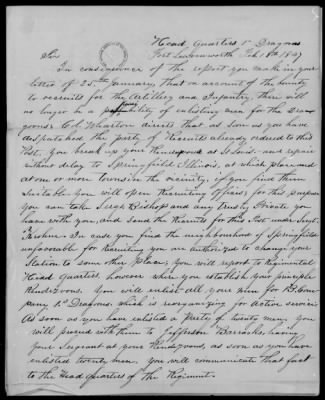 Head Quarters 1st Dragoons
Fort Leavenworth Feb 18th 1847
Sir
In consequence of the report you make in your
letter of 25th January, that on account of the bounty
to recruits for the Artillery and Infantry, there will
no longer be a possibility of enlisting men for the Dra-
goons; Col. Wharton directs that as soon as you have
despatched the party of Recruits already ordered to this
Post, you break up your Rendezvous at St. Louis, and repair
without delay to Springfield Illinois, at which place and
at one or more towns in the vicinity, if you find them
suitable you will open Recruiting offices; for this purpose
you can take Sergt Bishop and any trusty Private you
have with you, and send the Recruits for this Post under Sergt.
In case you find the neighbourhood of Springfield
unfavorable for Recruiting you are authorized to change your
Station to some other Place; you will report to Regimental
Head Quarters, however when you establish your principle
Rendezvous. You will enlist all your men for Com-
pany 1st Dragoons, which is reorganizing for active service.
As soon as you have enlisted a Party of twenty men, you
will proceed with them to Jefferson Barracks, having
your Sergeant at your Rendezvous, as soon as you have
enlisted twenty men, you will communicate that fact
to the Head Quarters of the Regiment.